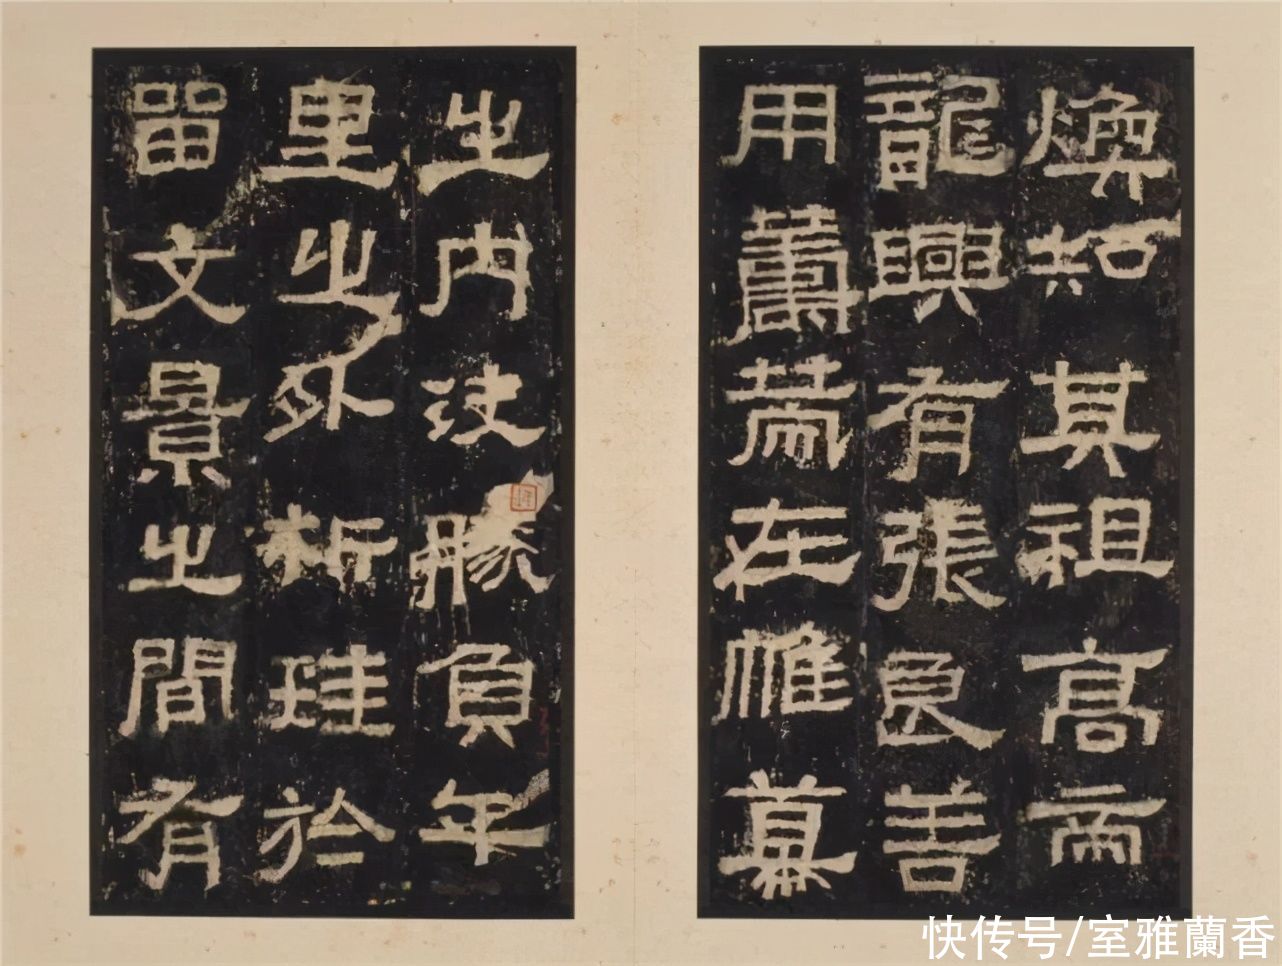 煥知其祖高帝
龍興有張良善
用籌策在帷幕
之内決勝負千
里之外析珪於
留文景之間有
快传号/室雅蘭香